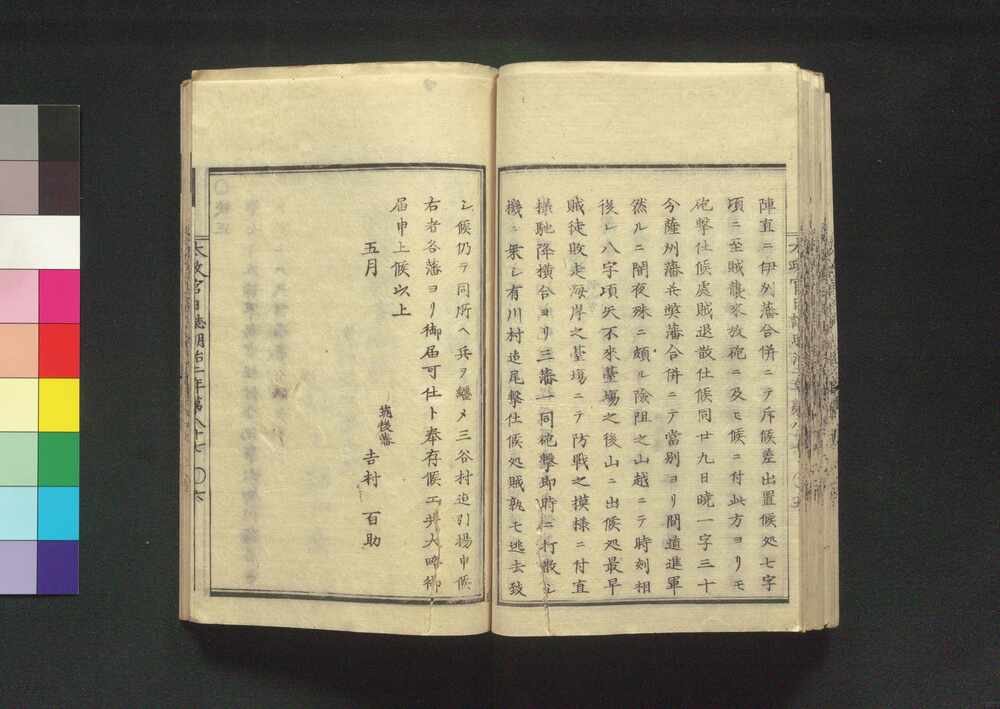 陣直ニ伊列藩合併ニテ斥候差出置候処七字
頃ニ至賊襲来放砲ニ及モ候ニ付此方ヨリモ
砲撃仕候處賊退散仕候同廿九日曉一字三十
分薩州藩兵弊藩合併ニテ當別ヨリ間道進軍
然ルニ闇夜殊ニ頗ル險阻之山越ニテ時刻相
後レ八字頃矢不來臺塲之後山ニ出候処最早
賊徒敗走海岸之臺塲ニテ防戰之摸樣ニ付直
樣馳降横合ヨリ三藩一同砲撃即時ニ打散シ
機ニ乗シ有川村迠尾撃仕候処賊孰モ逃去致
シ候仍テ同所ヘ兵ヲ纒メ三谷村迠引揚申候
右者各藩ヨリ御届可仕ト奉存候エ共大略御
届申上候以上
五月
筑後藩
吉村 百助
太政官日誌明治二年第八十七 〇六